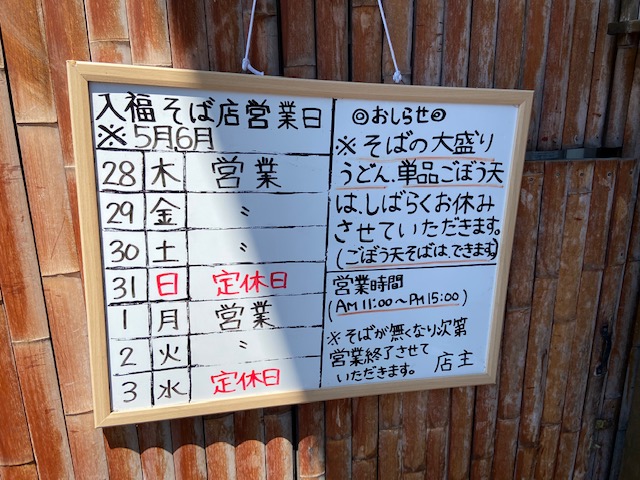 入福そば店営業日
※5月6月
28 木 営業
29 金 〃
30 土 〃
31 日 定休日
1 月 営業
2 火 〃
3 水 定休日
◎おしらせ◎
※そばの大盛り
うどん、単品ごぼう天
は、しばらくお休み
させていただきます。
(ごぼう天そばは、できます)
営業時間
(AM 11:00〜PM 15:00)
※そばが無くなり次第
営業終了させて
いただきます。 店主